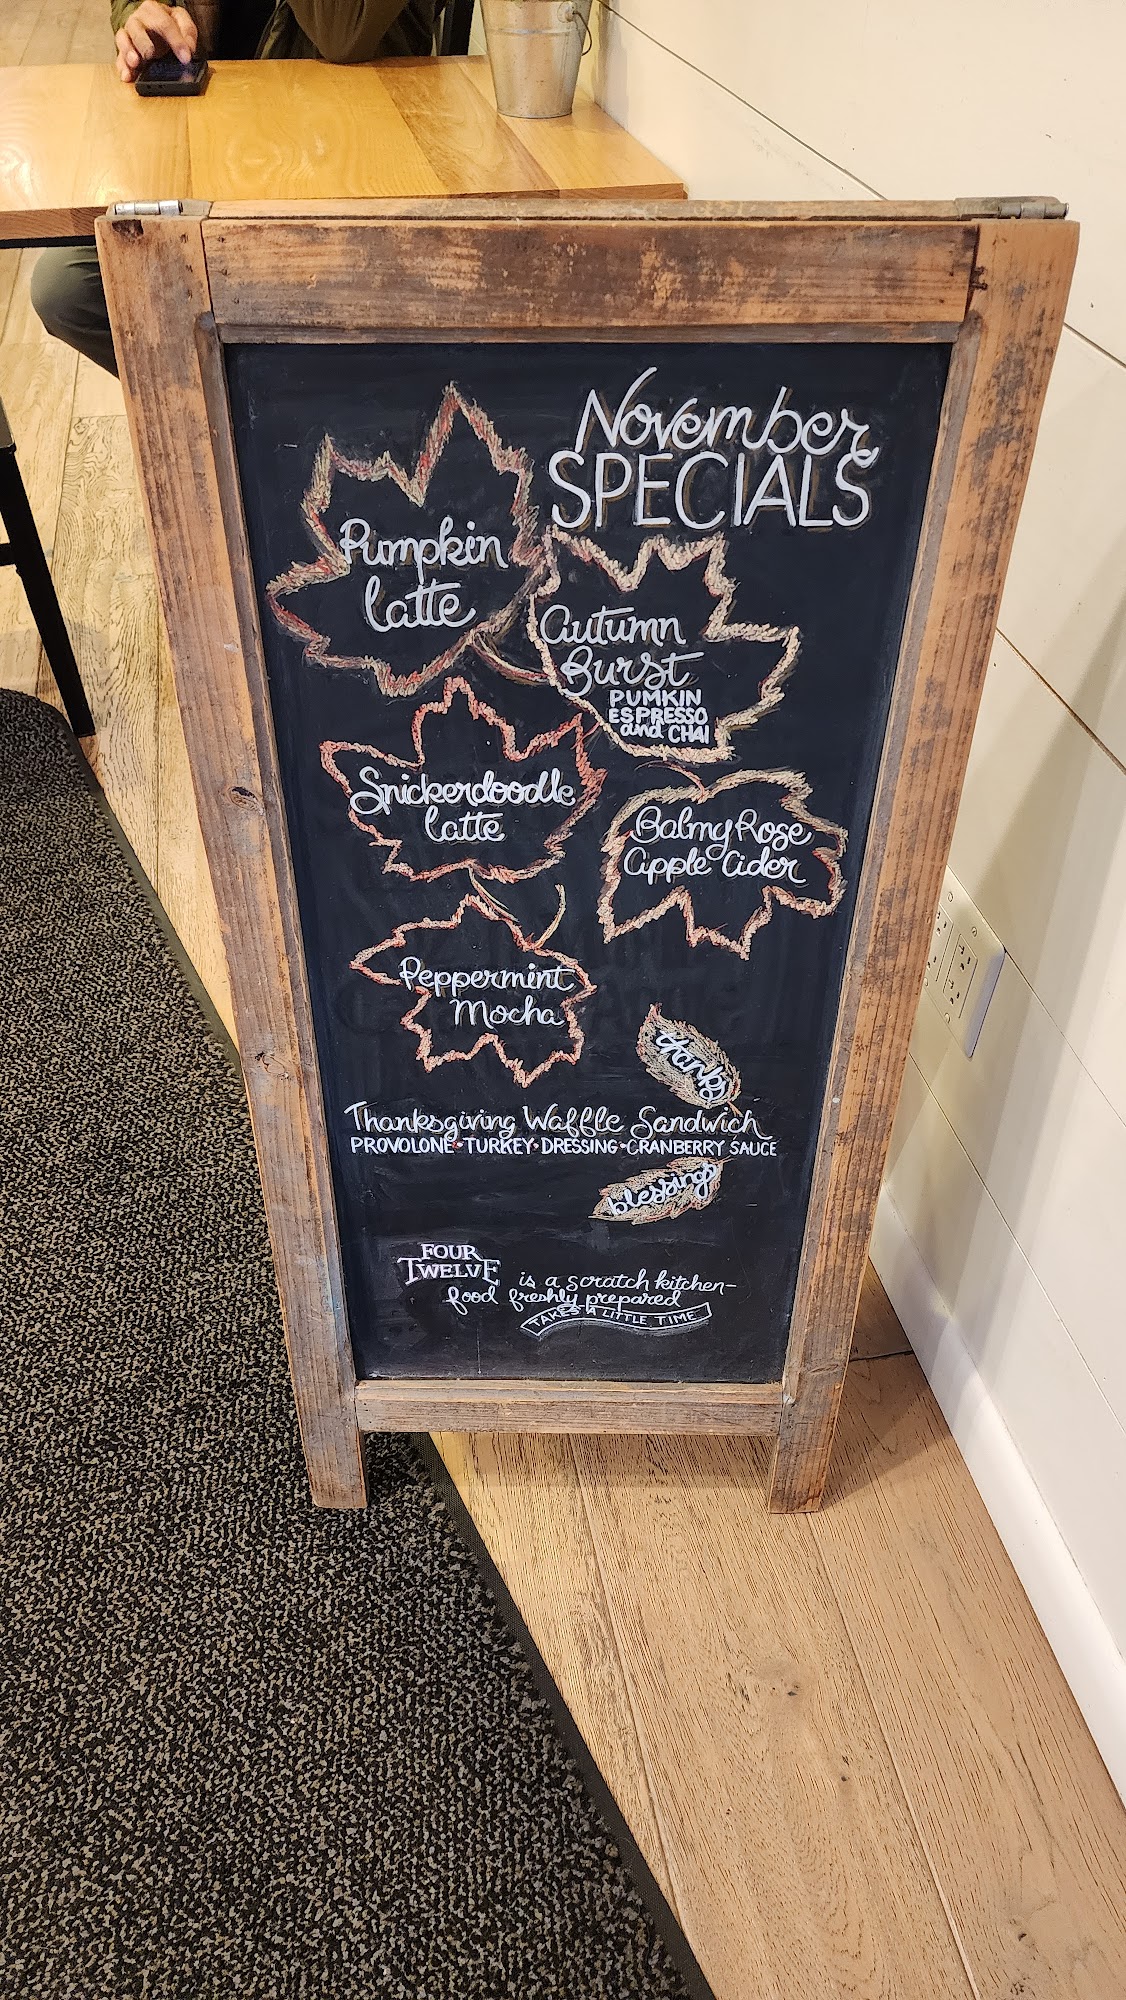 November
SPECIALS
Pumpkin
latte
Autumn
Burst
PUMKIN
ESPRESSO
and CHAI
Snickerdoodle
latte
Balmy Rose
Apple Cider
Peppermint
Mocha
thanks
Thanksgiving Waffle Sandwich
PROVOLONE • TURKEY • DRESSING • CRANBERRY SAUCE
blessings
FOUR
TWELVE is a scratch kitchen-
food freshly prepared
TAKES A LITTLE TIME